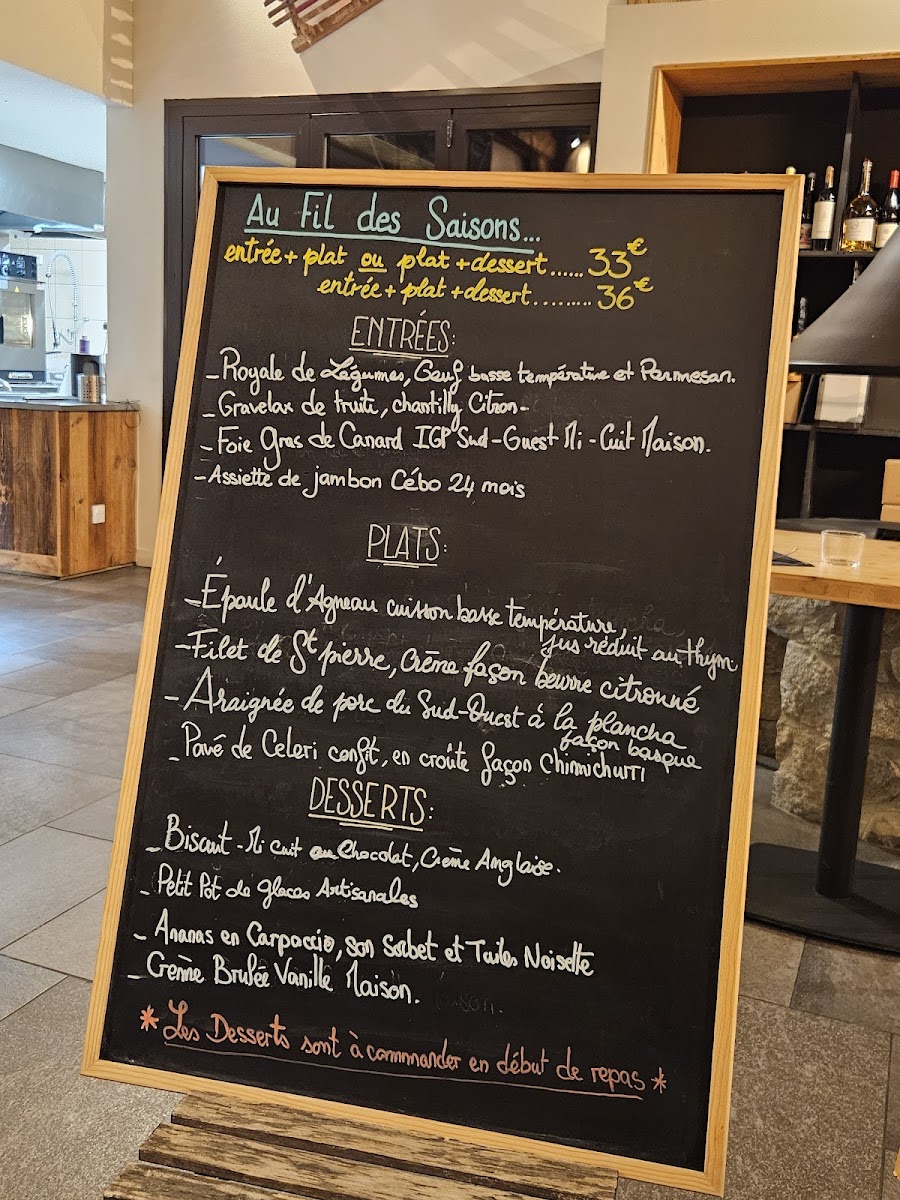 Au Fil des Saisons...
entrée + plat ou plat + dessert...... 33€
entrée + plat + dessert......... 36€
ENTRÉES:
- Royale de Légumes, Oeuf basse température et Parmesan.
- Gravelax de truite, chantilly Citron-
- Foie gras de Canard IGP Sud-Ouest Mi-Cuit Maison.
- Assiette de jambon Cébo 24 mois
PLATS:
- Épaule d'Agneau cuisson basse température,
jus réduit au thym
- Filet de St pierre, Crème façon beurre citronné
- Araignée de porc du Sud-Ouest à la plancha
façon basque
- Pavé de Celeri confit, en croûte façon Chimichurri
DESSERTS:
- Biscuit-Mi cuit au Chocolat, Crème Anglaise.
- Petit Pot de glaces Artisanales
- Ananas en Carpaccio, son Sorbet et Tuiles Noisette
- Crème Brulée Vanille Maison.
* Les Desserts sont à commander en début de repas *